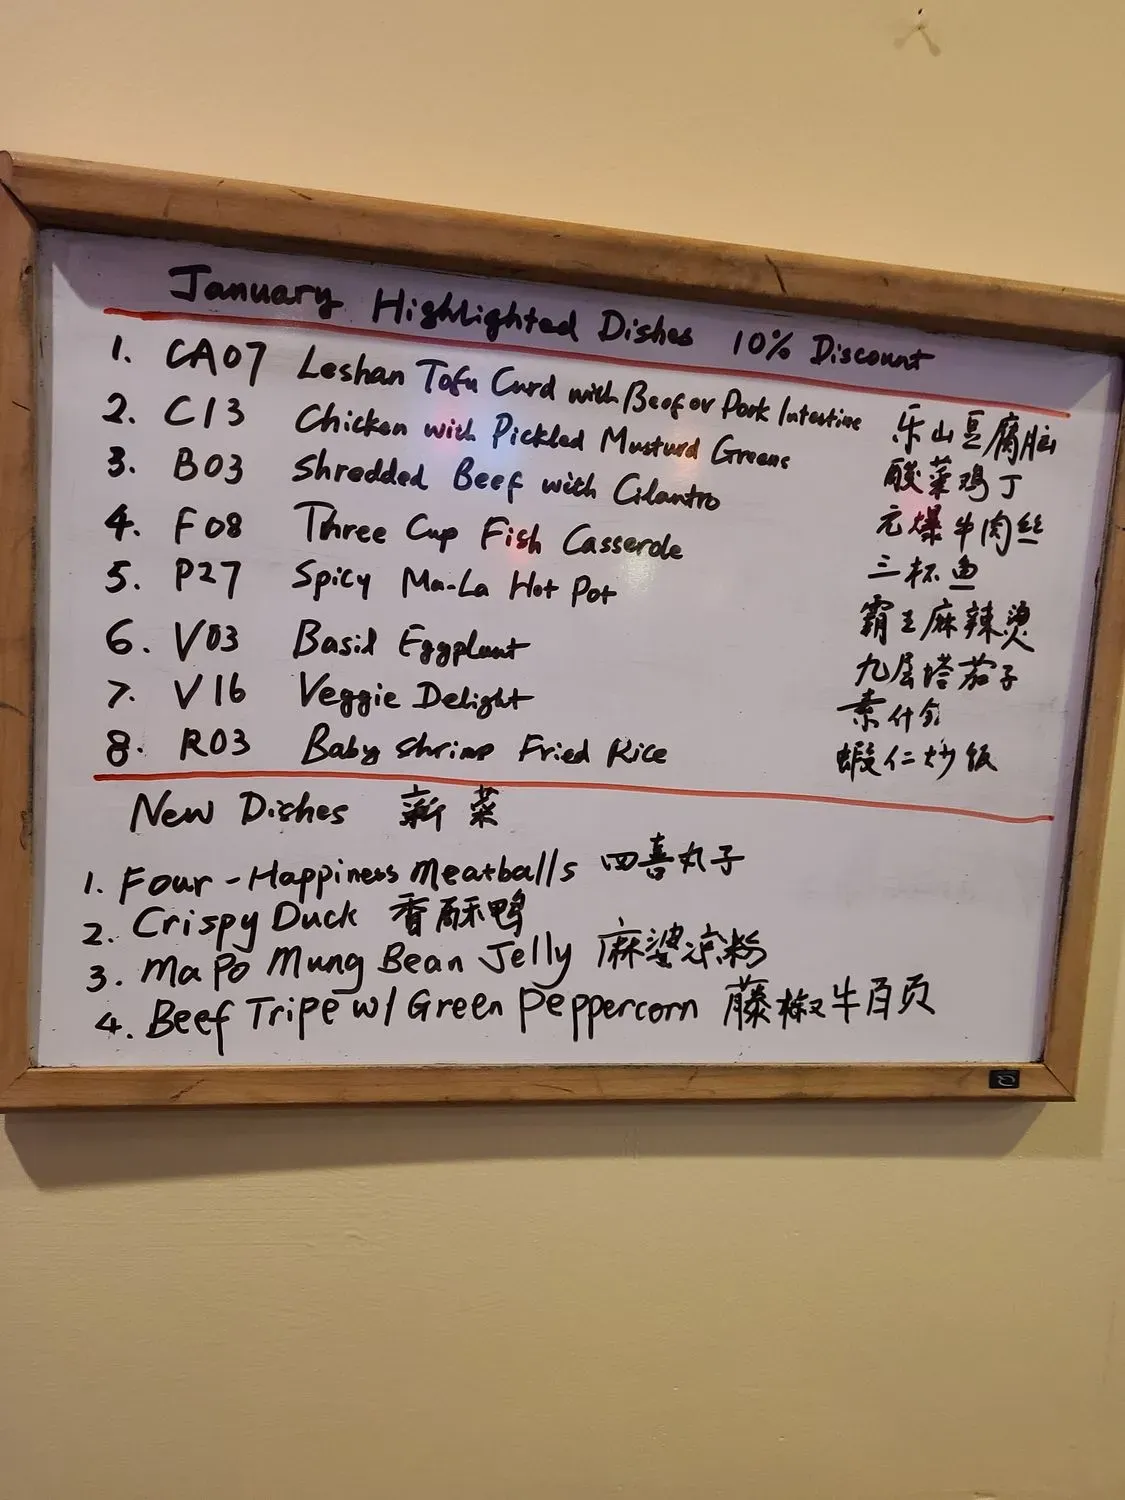 January Highlighted Dishes 10% Discount
1. CA07 Leshan Tofu Curd with Beef or Pork Intestine 乐山豆腐脑
2. C13 Chicken with Pickled Mustard Greens 酸菜鸡丁
3. B03 Shredded Beef with Cilantro 元爆牛肉丝
4. F08 Three Cup Fish Casserole 三杯鱼
5. P27 Spicy Ma-La Hot Pot 霸王麻辣烫
6. V03 Basil Eggplant 九层塔茄子
7. V16 Veggie Delight 素什锦
8. R03 Baby Shrimp Fried Rice 蝦仁炒飯
New Dishes 新菜
1. Four-Happiness Meatballs 四喜丸子
2. Crispy Duck 香酥鸭
3. Ma Po Mung Bean Jelly 麻婆凉粉
4. Beef Tripe w/ Green Peppercorn 藤椒牛百页